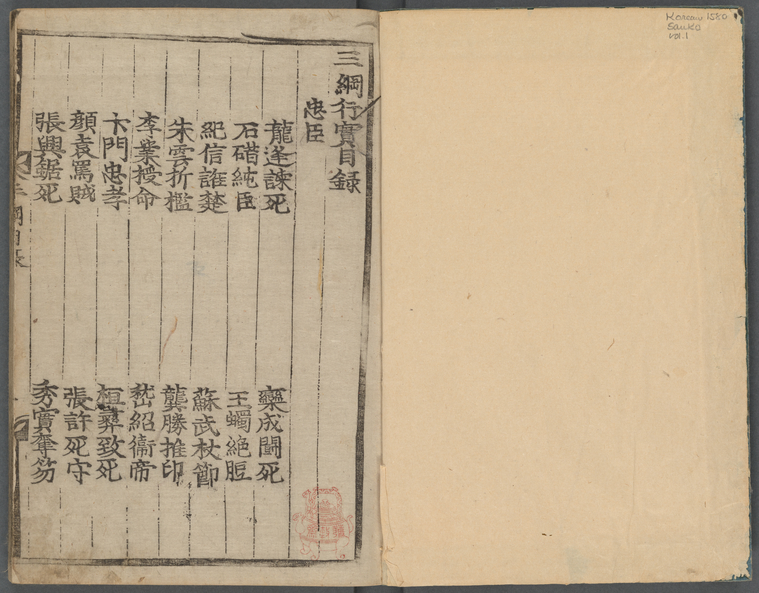 三綱行實目錄
忠臣
龍逄諫死
欒成鬪死
石碏純臣
王蠋絶脰
紀信誑楚
蘇武杖節
朱雲折檻
龔勝推印
李業授命
嵇紹衞帝
卞門忠孝
桓彝致死
顔袁罵賊
張許死守
張興鋸死
秀實奪笏
Korean 1580
Sanko
vol.1